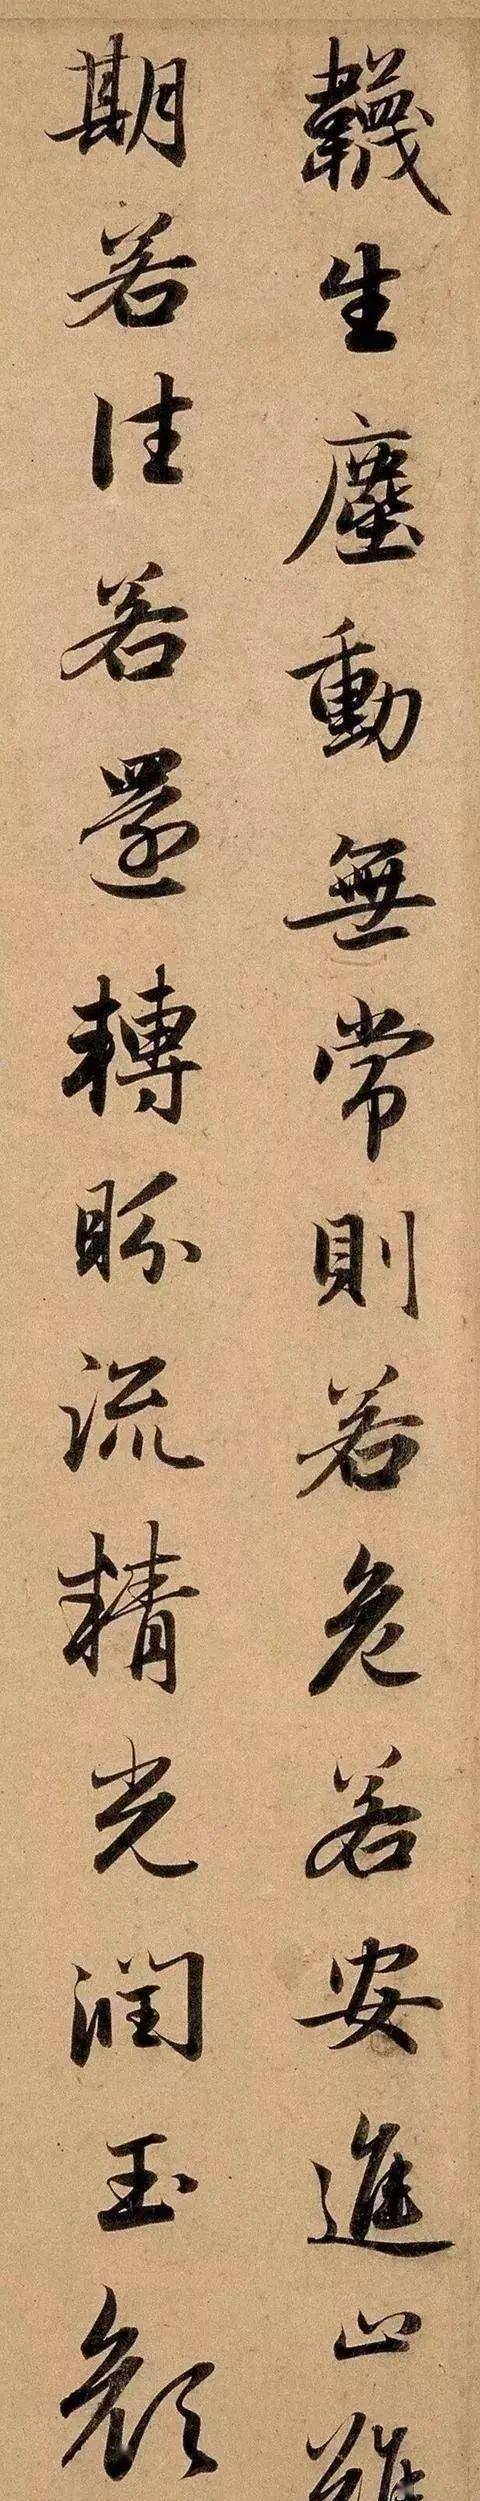 韈生塵動無常則若危若安進止難
期若往若還轉盼流精光潤玉顏